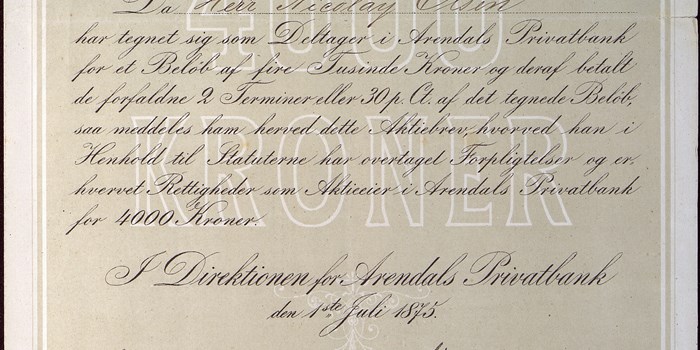 Da Herr Nicolay Olsen
har tegnet sig som Deltager i Arendals Privatbank
for et Belöb af fire Tusinde Kroner og deraf betalt
de forfaldne 2 Terminer eller 30 p. Ct. af det tegnede Belöb,
saa meddeles ham herved dette Aktiebrev, hvorved han i
Henhold til Statuterne har overtaget Forpligtelser og er,
hvervet Rettigheder som Aktieeier i Arendals Privatbank
for 4000 Kroner.
4000
KRONER
I Direktionen for Arendals Privatbank
den 1ste Juli 1875.